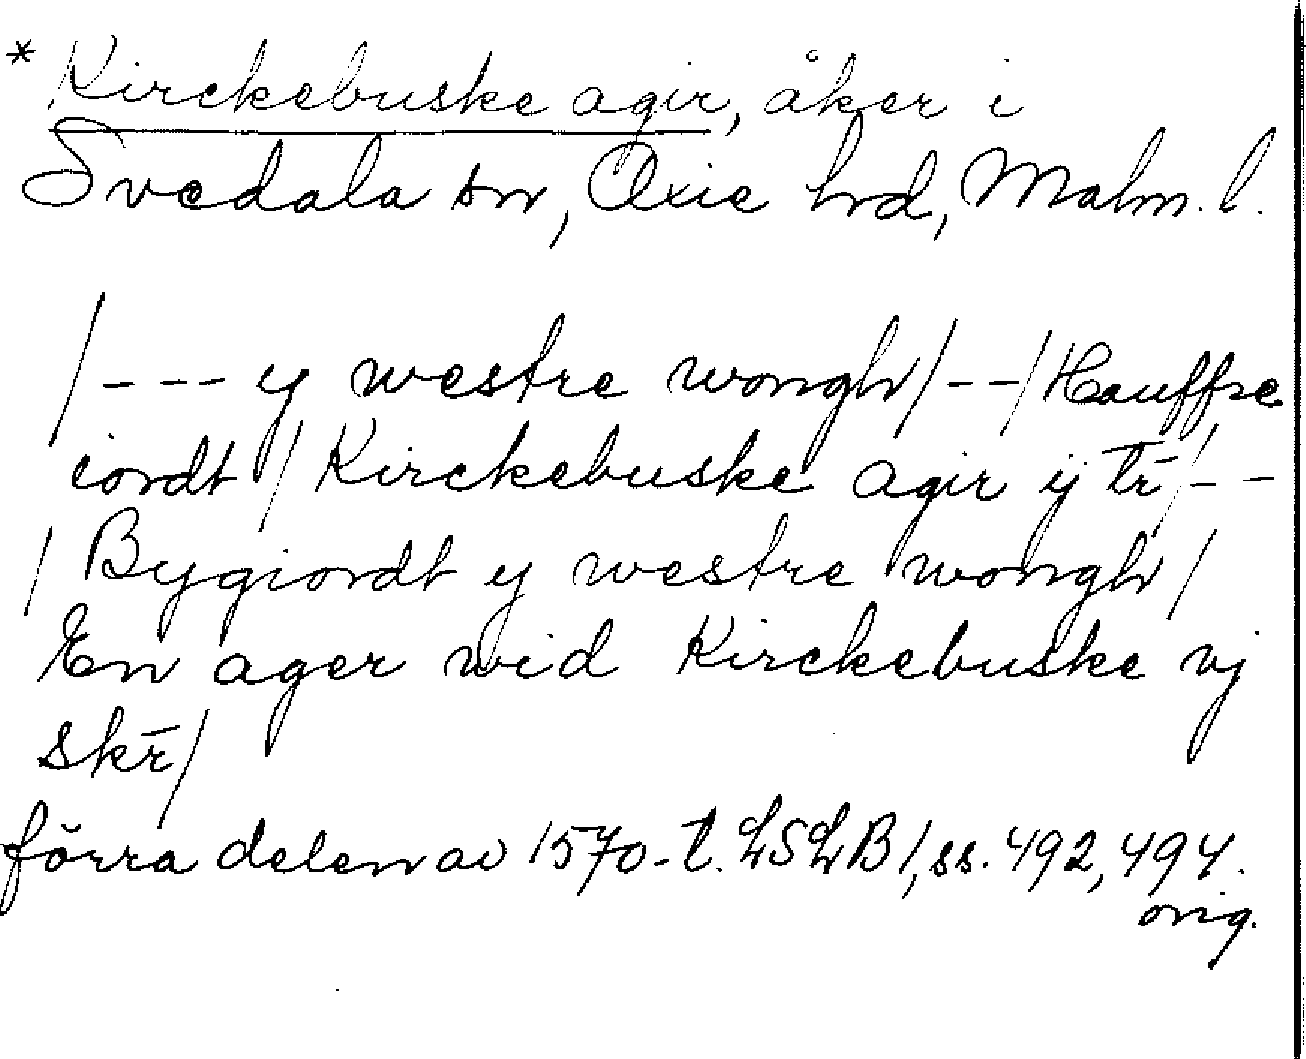 * Kirckebuske agir, åker i
Svedala sn, Oxie hrd, Malm. l.
/--- y westre wongh/--/Hauffre
iordt / Kirckebuske agir ij tr̄/--
/ Bygiordt y westre wongh/
En ager wid Kirckebuske vj
skr̄/
förra delen av 1570-t. LSLB1, ss. 492, 494.
orig.